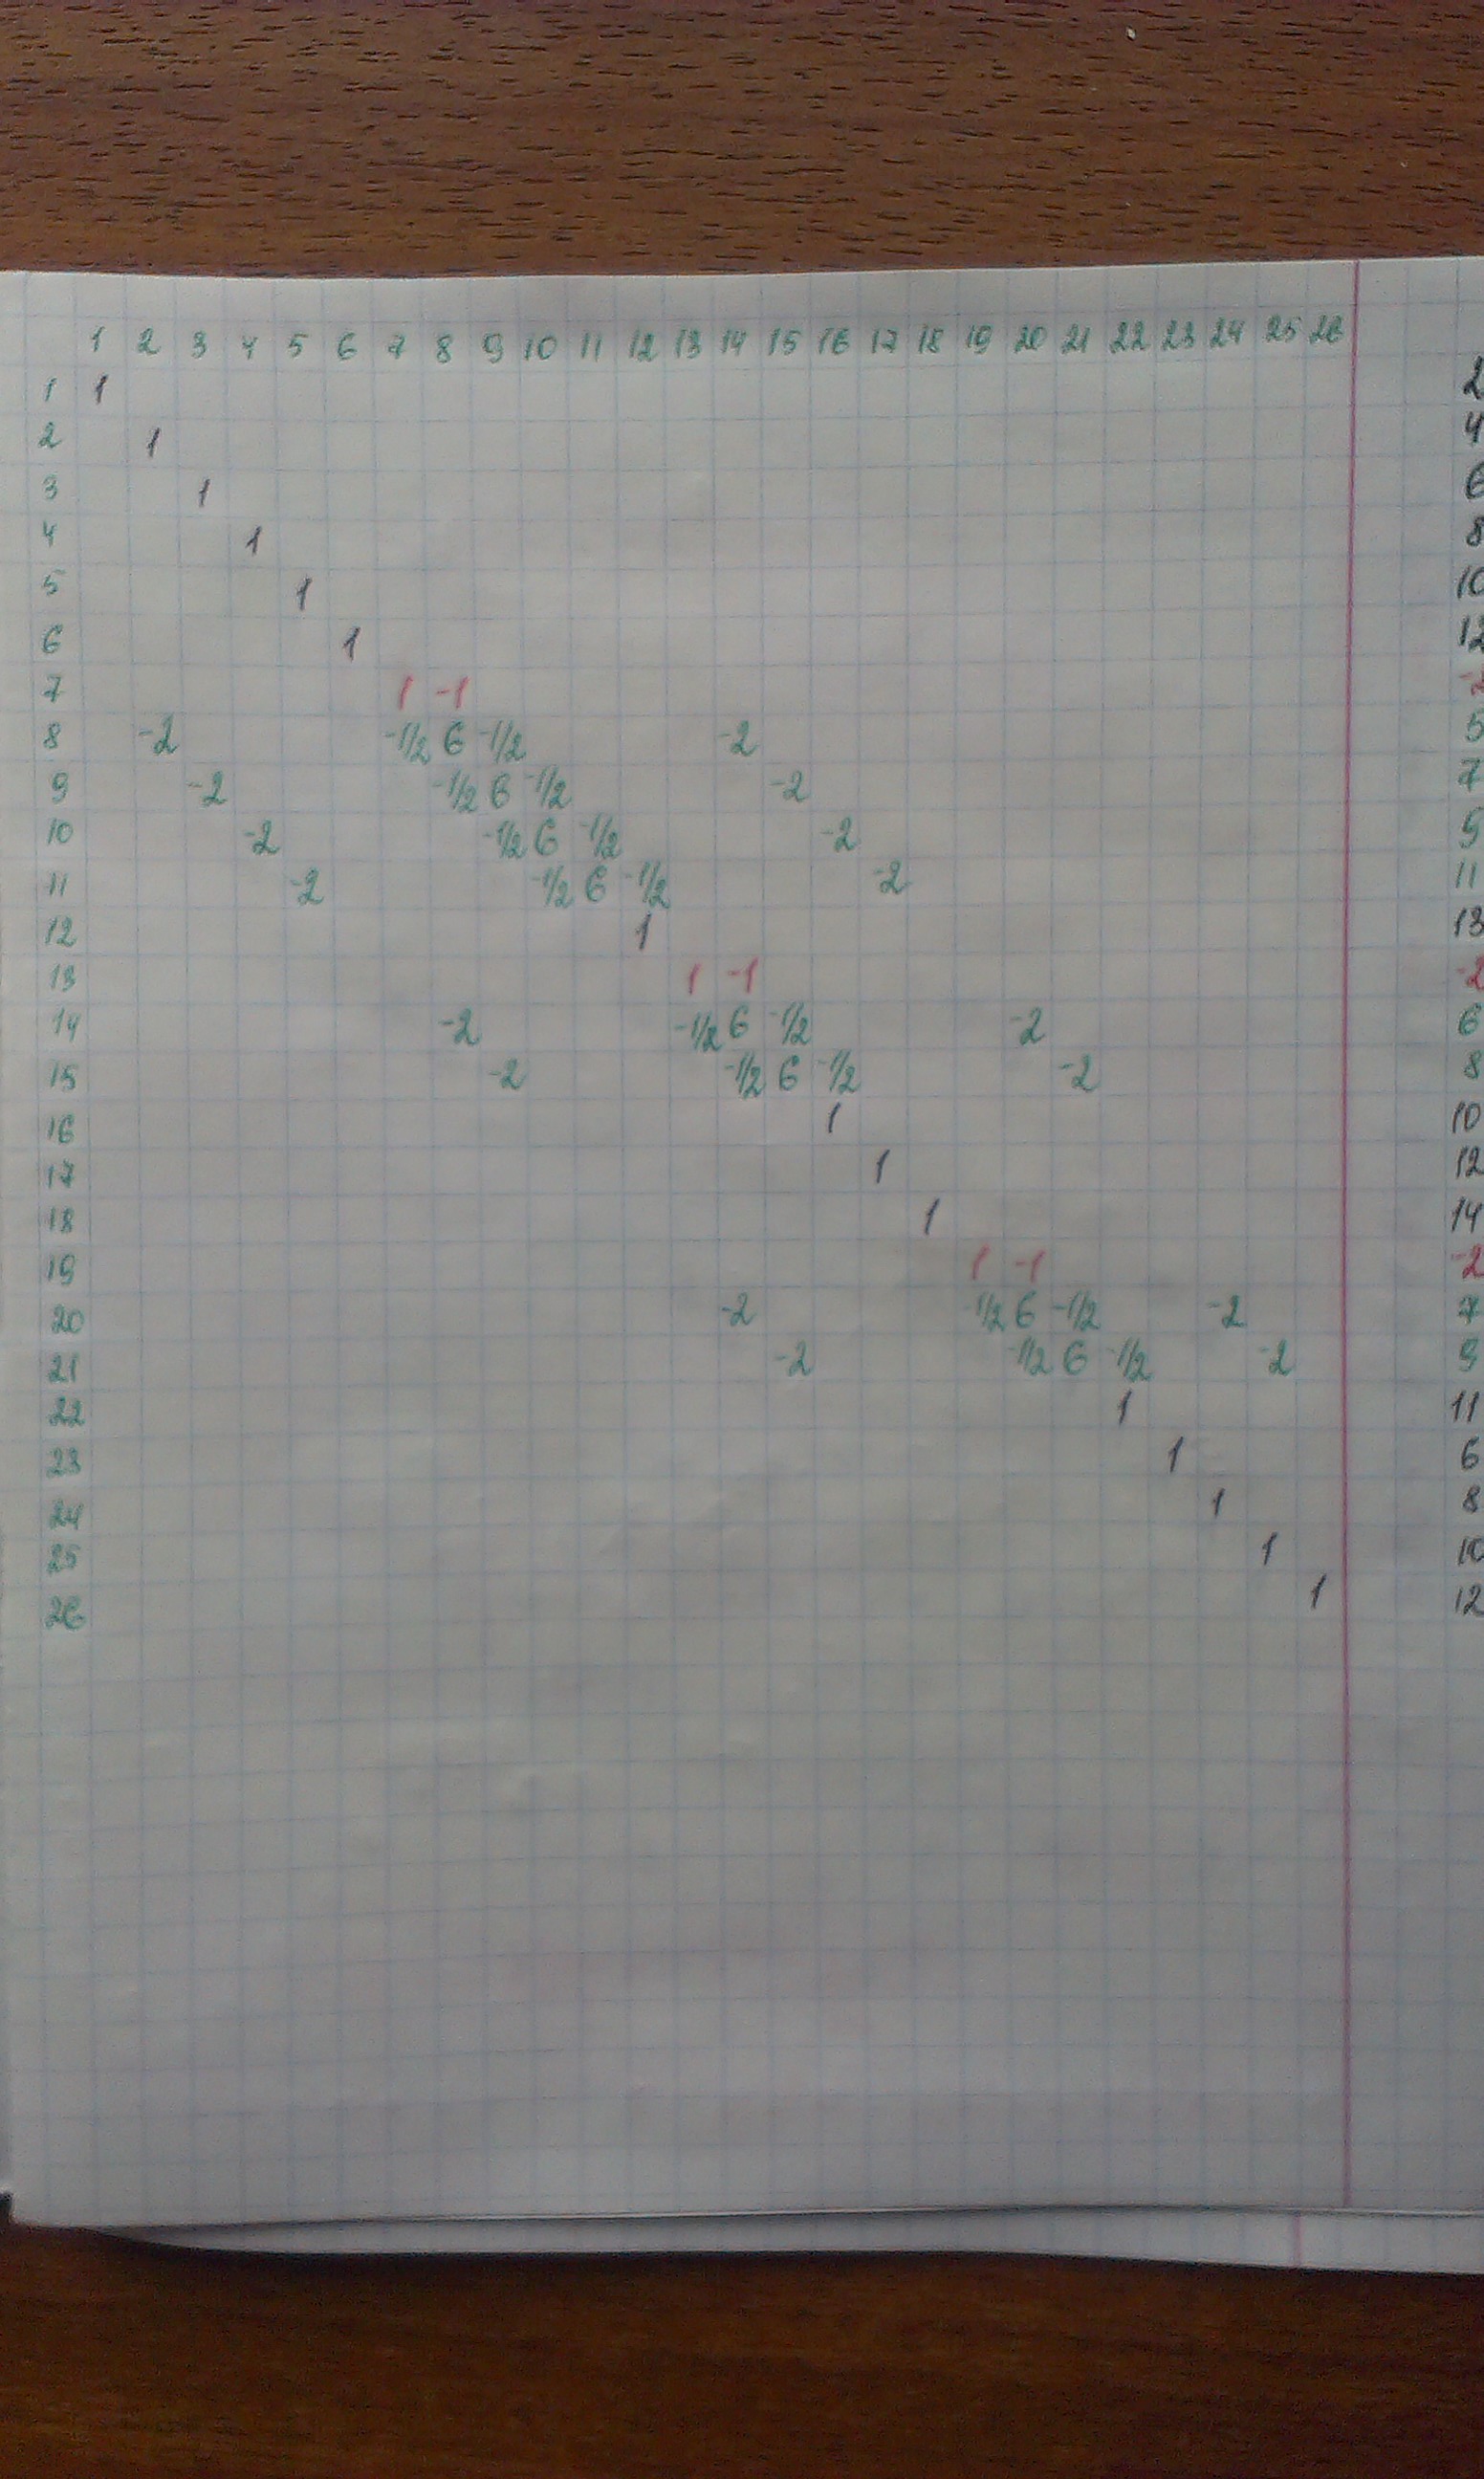 1 2 3 4 5 6 7 8 9 10 11 12 13 14 15 16 17 18 19 20 21 22 23 24 25 26
1 1 2
2 1 4
3 1 6
4 1 8
5 1 10
6 1 12
7 1 -1 -2
8 -2 -1/2 6 -1/2 -2 5
9 -2 -1/2 6 -1/2 -2 7
10 -2 -1/2 6 -1/2 -2 9
11 -2 -1/2 6 -1/2 -2 11
12 1 13
13 1 -1 -2
14 -2 -1/2 6 -1/2 -2 6
15 -2 -1/2 6 -1/2 -2 8
16 1 10
17 1 12
18 1 14
19 1 -1 -2
20 -2 -1/2 6 -1/2 -2 7
21 -2 -1/2 6 -1/2 -2 9
22 1 11
23 1 6
24 1 8
25 1 10
26 1 12